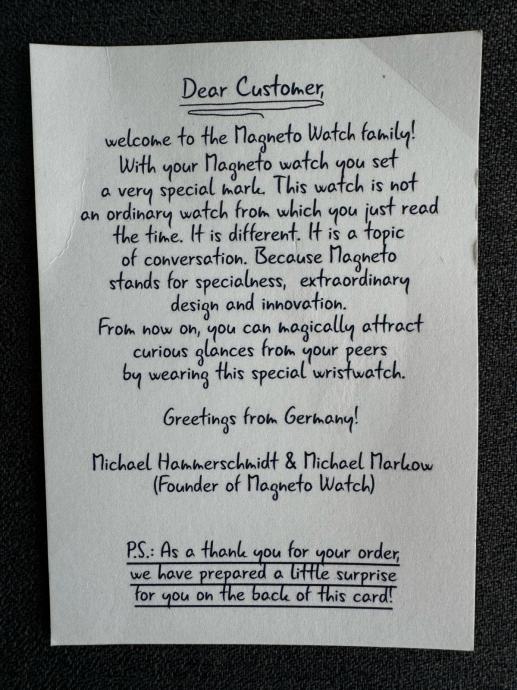 Dear Customer,
welcome to the Magneto Watch family!
With your Magneto watch you set
a very special mark. This watch is not
an ordinary watch from which you just read
the time. It is different. It is a topic
of conversation. Because Magneto
stands for specialness, extraordinary
design and innovation.
From now on, you can magically attract
curious glances from your peers
by wearing this special wristwatch.
Greetings from Germany!
Michael Hammerschmidt & Michael Markow
(Founder of Magneto Watch)
P.S.: As a thank you for your order,
we have prepared a little surprise
for you on the back of this card!